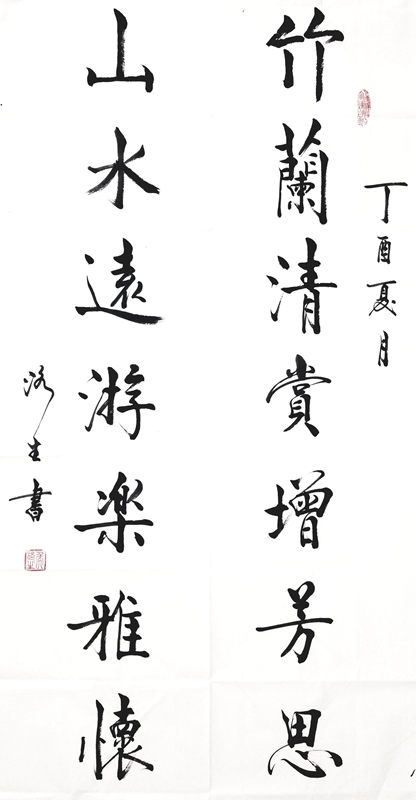 丁酉夏月
竹蘭清賞增芳思
山水遠游楽雅懷
洛生書